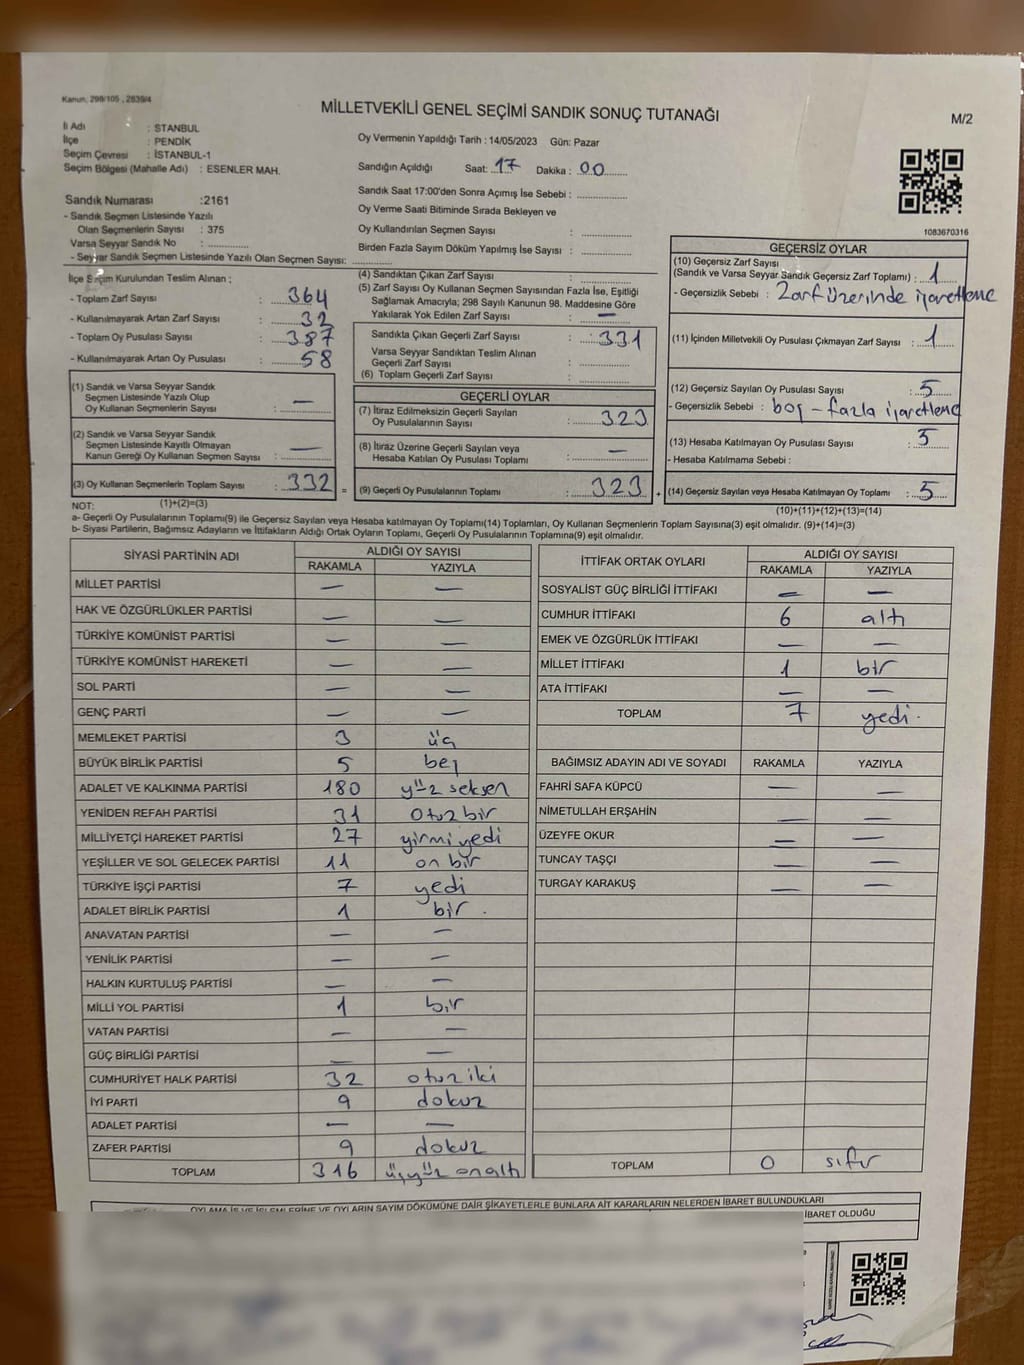 Kanun; 298/105 , 2839/4
MİLLETVEKİLİ GENEL SEÇİMİ SANDIK SONUÇ TUTANAĞI
M/2
İl Adı : STANBUL
İlçe : PENDİK
Seçim Çevresi : İSTANBUL-1
Seçim Bölgesi (Mahalle Adı) : ESENLER MAH.
Oy Vermenin Yapıldığı Tarih : 14/05/2023 Gün: Pazar
Sandığın Açıldığı Saat: 17 Dakika : 00
Sandık Saat 17:00'den Sonra Açımış İse Sebebi :
Oy Verme Saati Bitiminde Sırada Bekleyen ve
Oy Kullandırılan Seçmen Sayısı :
Birden Fazla Sayım Döküm Yapılmış İse Sayısı :
Sandık Numarası :2161
- Sandık Seçmen Listesinde Yazılı
Olan Seçmenlerin Sayısı : 375
Varsa Seyyar Sandık No :
- Seyyar Sandık Seçmen Listesinde Yazılı Olan Seçmen Sayısı:
1083670316
İlçe Seçim Kurulundan Teslim Alınan ;
- Toplam Zarf Sayısı : 364
- Kullanılmayarak Artan Zarf Sayısı : 32
- Toplam Oy Pusulası Sayısı : 387
- Kullanılmayarak Artan Oy Pusulası : 58
(1) Sandık ve Varsa Seyyar Sandık
Seçmen Listesinde Yazılı Olup
Oy Kullanan Seçmenlerin Sayısı : —
(2) Sandık ve Varsa Seyyar Sandık
Seçmen Listesinde Kayıtlı Olmayan
Kanun Gereği Oy Kullanan Seçmen Sayısı : —
(3) Oy Kullanan Seçmenlerin Toplam Sayısı : 332 =
(1)+(2)=(3)
(4) Sandıktan Çıkan Zarf Sayısı :
(5) Zarf Sayısı Oy Kullanan Seçmen Sayısından Fazla İse, Eşitliği
Sağlamak Amacıyla; 298 Sayılı Kanunun 98. Maddesine Göre
Yakılarak Yok Edilen Zarf Sayısı : —
Sandıkta Çıkan Geçerli Zarf Sayısı : 331
Varsa Seyyar Sandıktan Teslim Alınan
Geçerli Zarf Sayısı :
(6) Toplam Geçerli Zarf Sayısı :
GEÇERLİ OYLAR
(7) İtiraz Edilmeksizin Geçerli Sayılan
Oy Pusulalarının Sayısı : 323
(8) İtiraz Üzerine Geçerli Sayılan veya
Hesaba Katılan Oy Pusulası Toplamı : —
(9) Geçerli Oy Pusulalarının Toplamı : 323 +
GEÇERSİZ OYLAR
(10) Geçersiz Zarf Sayısı
(Sandık ve Varsa Seyyar Sandık Geçersiz Zarf Toplamı) : 1
- Geçersizlik Sebebi : Zarf üzerinde işaretleme
(11) İçinden Milletvekili Oy Pusulası Çıkmayan Zarf Sayısı : 1
(12) Geçersiz Sayılan Oy Pusulası Sayısı : 5
- Geçersizlik Sebebi : boş - fazla işaretleme
(13) Hesaba Katılmayan Oy Pusulası Sayısı :
- Hesaba Katılmama Sebebi :
(14) Geçersiz Sayılan veya Hesaba Katılmayan Oy Toplamı : 5
(10)+(11)+(12)+(13)=(14)
NOT:
a- Geçerli Oy Pusulalarının Toplamı(9) ile Geçersiz Sayılan veya Hesaba katılmayan Oy Toplamı(14) Toplamları, Oy Kullanan Seçmenlerin Toplam Sayısına(3) eşit olmalıdır. (9)+(14)=(3)
b- Siyasi Partilerin, Bağımsız Adayların ve İttifakların Aldığı Ortak Oyların Toplamı, Geçerli Oy Pusulalarının Toplamına(9) eşit olmalıdır.
SİYASİ PARTİNİN ADI ALDIĞI OY SAYISI
RAKAMLA YAZIYLA
MİLLET PARTİSİ — —
HAK VE ÖZGÜRLÜKLER PARTİSİ — —
TÜRKİYE KOMÜNİST PARTİSİ — —
TÜRKİYE KOMÜNİST HAREKETİ — —
SOL PARTİ — —
GENÇ PARTİ — —
MEMLEKET PARTİSİ 3 üç
BÜYÜK BİRLİK PARTİSİ 5 beş
ADALET VE KALKINMA PARTİSİ 180 yüz seksen
YENİDEN REFAH PARTİSİ 31 otuz bir
MİLLİYETÇİ HAREKET PARTİSİ 27 yirmi yedi
YEŞİLLER VE SOL GELECEK PARTİSİ 11 on bir
TÜRKİYE İŞÇİ PARTİSİ 7 yedi
ADALET BİRLİK PARTİSİ 1 bir .
ANAVATAN PARTİSİ — —
YENİLİK PARTİSİ — —
HALKIN KURTULUŞ PARTİSİ — —
MİLLİ YOL PARTİSİ 1 bir
VATAN PARTİSİ — —
GÜÇ BİRLİĞİ PARTİSİ — —
CUMHURİYET HALK PARTİSİ 32 otuz iki
İYİ PARTİ 9 dokuz
ADALET PARTİSİ — —
ZAFER PARTİSİ 9 dokuz
TOPLAM 316 üçyüz onaltı
İTTİFAK ORTAK OYLARI ALDIĞI OY SAYISI
RAKAMLA YAZIYLA
SOSYALİST GÜÇ BİRLİĞİ İTTİFAKI — —
CUMHUR İTTİFAKI 6 altı
EMEK VE ÖZGÜRLÜK İTTİFAKI — —
MİLLET İTTİFAKI 1 bir
ATA İTTİFAKI — —
TOPLAM 7 yedi.
BAĞIMSIZ ADAYIN ADI VE SOYADI RAKAMLA YAZIYLA
FAHRİ SAFA KÜPCÜ — —
NİMETULLAH ERŞAHİN — —
ÜZEYFE OKUR — —
TUNCAY TAŞÇI — —
TURGAY KARAKUŞ — —
TOPLAM 0 sıfır
OYLAMA İŞ VE İŞLEMLERİNE VE OYLARIN SAYIM DÖKÜMÜNE DAİR ŞİKAYETLERLE BUNLARA AİT KARARLARIN NELERDEN İBARET BULUNDUKLARI
İBARET OLDUĞU